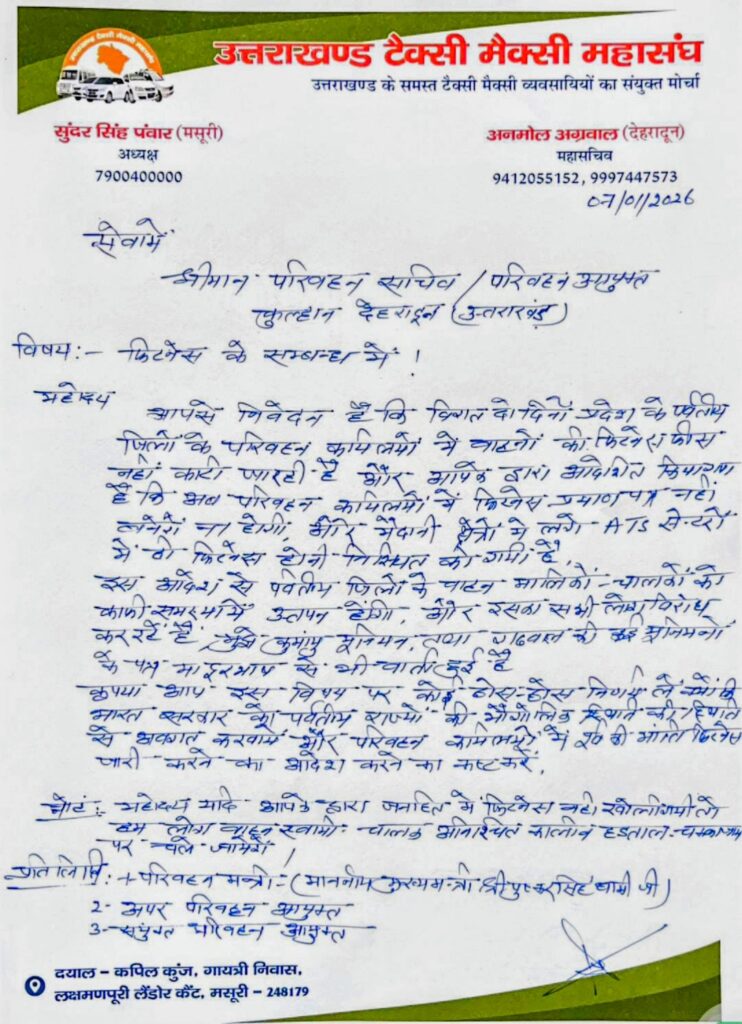 उत्तराखण्ड टैक्सी मैक्सी महासंघ
उत्तराखण्ड टैक्सी मैक्सी महासंघ
उत्तराखण्ड के समस्त टैक्सी मैक्सी व्यवसायियों का संयुक्त मोर्चा
सुंदर सिंह पंवार (मसूरी)
अध्यक्ष
7900400000
अनमोल अग्रवाल (देहरादून)
महासचिव
9412055152, 9997447573
07/01/2026
सेवामें
श्रीमान परिवहन सचिव / परिवहन आयुक्त
कुल्हान देहरादून (उत्तराखंड)
विषय:- फिटनेस के सम्बन्ध में !
महोदय
आपसे निवेदन है कि विगत दो दिनों प्रदेश के पर्वतीय
जिलों के परिवहन कार्यालयों में वाहनों की फिटनेस फीस
नहीं काटी जा रही है और आपके द्वारा आदेशित किया गया
है कि अब परिवहन कार्यालयों में फिटनेस प्रमाण पत्र नहीं
होगी, और मैदानी क्षेत्रों में लगे ATS सेन्टरों
में ही फिटनेस होनी निश्चित की गयी है,
इस आदेश से पर्वतीय जिलों के वाहन मालिकों-चालकों को
काफी समस्यायें उत्पन होंगी, और इसका सभी लोग विरोध
कर रहें हैं, मुझे कुमांयु यूनियन, तथा गढवाल की कई यूनियनों
के पत्र दूरभाष से भी वार्ता हुई है
कृपया आप इस विषय पर कोई ठोस-ठोस निर्णय लें
भारत सरकार को पर्वतीय राज्यों की भौगोलिक स्थिति
से अवगत करवायें और परिवहन कार्यालयों में पूर्व की भांति फिटनेस
जारी करने का आदेश करने का कष्ट करें,
नोट:- महोदय यदि आपके द्वारा जनहित में फिटनेस नहीं खोली गयी तो
हम लोग वाहन स्वामी-चालक अनिश्चित कालीन हडताल-चक्का जाम
पर चले जायेंगे !
प्रतिलिपि:- 1- परिवहन मन्त्री:- (माननीय मुख्यमन्त्री श्री पुष्कर सिंह धामी जी)
2- अपर परिवहन आयुक्त
3- संयुक्त परिवहन आयुक्त
दयाल – कपिल कुंज, गायत्री निवास,
लक्ष्मणपूरी लैंडोर कैंट, मसूरी – 248179